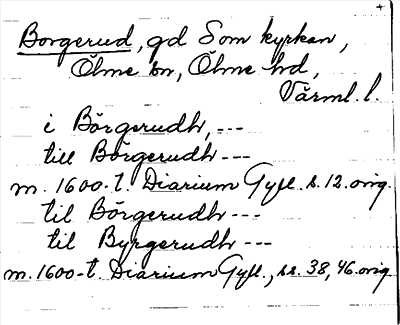 +
Borgerud, gd Som kyrkan,
Ölme sn, Ölme hd,
Värml. l.
i Börgerudh, ---
till Börgerudh ---
m. 1600-t. Diarium Gyll. s. 12. orig.
til Börgerudh ---
til Byrgerudh ---
m. 1600-t. Diarium Gyll., ss. 38, 46. orig